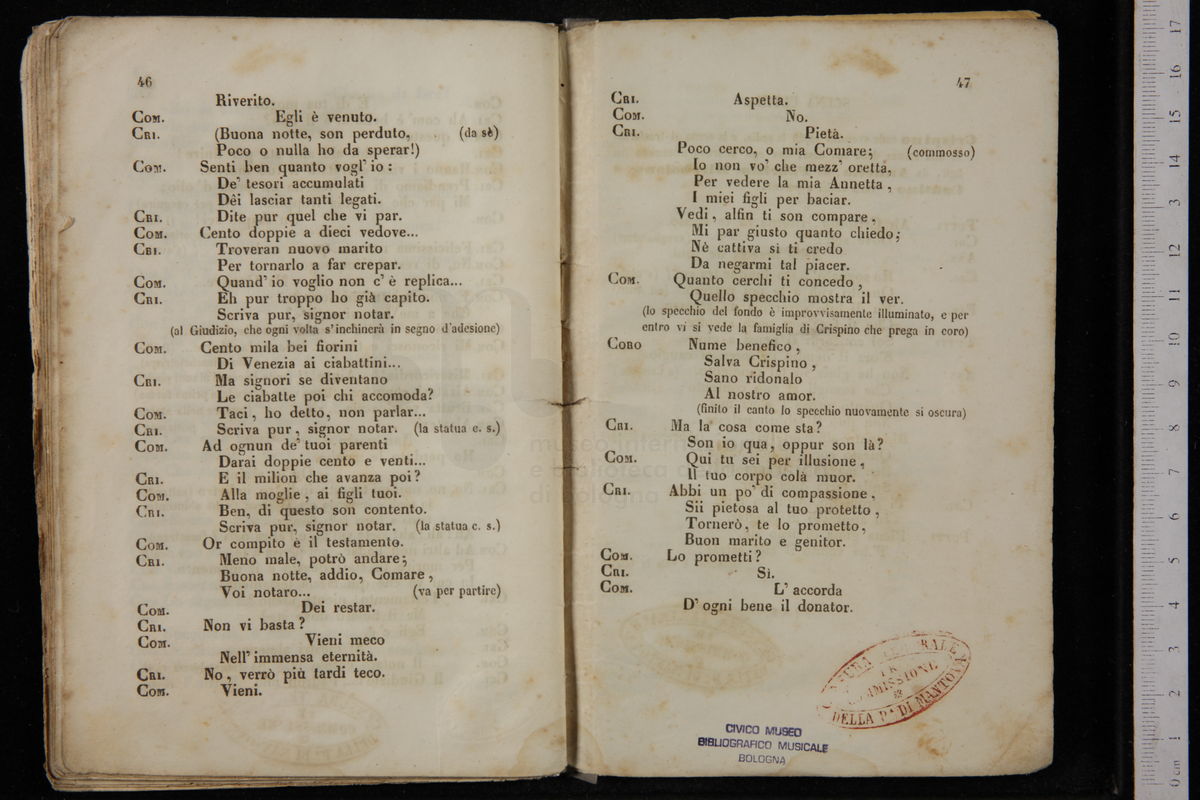 46
Riverito.
COM. Egli è venuto.
CRI. (Buona notte, son perduto, (da sè)
Poco o nulla ho da sperar!)
COM. Senti ben quanto vogl' io :
De' tesori accumulati
Dêi lasciar tanti legati.
CRI. Dite pur quel che vi par.
COM. Cento doppie a dieci vedove...
CRI. Troveran nuovo marito
Per tornarlo a far crepar.
COM. Quand' io voglio non c' è replica...
CRI. Eh pur troppo ho già capito.
Scriva pur, signor notar.
(al Giudizio, che ogni volta s'inchinerà in segno d'adesione)
COM. Cento mila bei fiorini
Di Venezia ai ciabattini...
CRI. Ma signori se diventano
Le ciabatte poi chi accomoda?
COM. Taci, ho detto, non parlar...
CRI. Scriva pur, signor notar. (la statua c. s.)
COM. Ad ognun de' tuoi parenti
Darai doppie cento e venti...
CRI. E il milion che avanza poi?
COM. Alla moglie, ai figli tuoi.
CRI. Ben, di questo son contento.
Scriva pur, signor notar. (la statua c. s.)
COM. Or compito è il testamento.
CRI. Meno male, potrò andare;
Buona notte, addio, Comare,
Voi notaro... (va per partire)
COM. Dei restar.
CRI. Non vi basta?
COM. Vieni meco
Nell' immensa eternità.
CRI. No, verrò più tardi teco.
COM. Vieni.
47
CRI. Aspetta.
COM. No.
CRI. Pietà.
Poco cerco, o mia Comare; (commosso)
Io non vo' che mezz' oretta,
Per vedere la mia Annetta,
I miei figli per baciar.
Vedi, alfin ti son compare,
Mi par giusto quanto chiedo;
Nè cattiva sì ti credo
Da negarmi tal piacer.
COM. Quanto cerchi ti concedo,
Quello specchio mostra il ver.
(lo specchio del fondo è improvvisamente illuminato, e per
entro vi si vede la famiglia di Crispino che prega in coro)
CORO Nume benefico,
Salva Crispino,
Sano ridonalo
Al nostro amor.
(finito il canto lo specchio nuovamente si oscura)
CRI. Ma la cosa come sta?
Son io qua, oppur son là?
COM. Qui tu sei per illusione,
Il tuo corpo colà muor.
CRI. Abbi un po' di compassione,
Sii pietosa al tuo protetto,
Tornerò, te lo prometto,
Buon marito e genitor.
COM. Lo prometti?
CRI. Sì.
COM. L' accorda
D' ogni bene il donator.
DELLA P.a DI MANTOVA
CIVICO MUSEO
BIBLIOGRAFICO MUSICALE
BOLOGNA